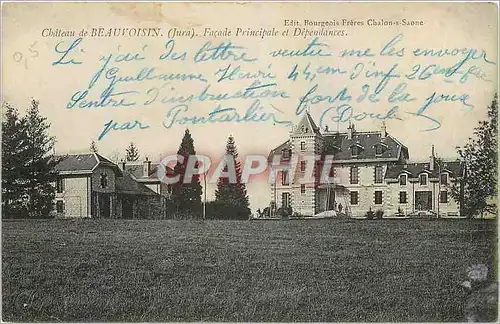 Edit. Bourgeois Frères Chalon-s-Saone
Château de BEAUVOISIN. (Jura). Façade Principale et Dépendances.
0,5
Li j'ai des lettre veutie me les envoyer
Guillaume Henri 44em D'inf 26em Cie
Centre d'instruction fort de la joux
par Pontarlier Doubs
CPARAMA